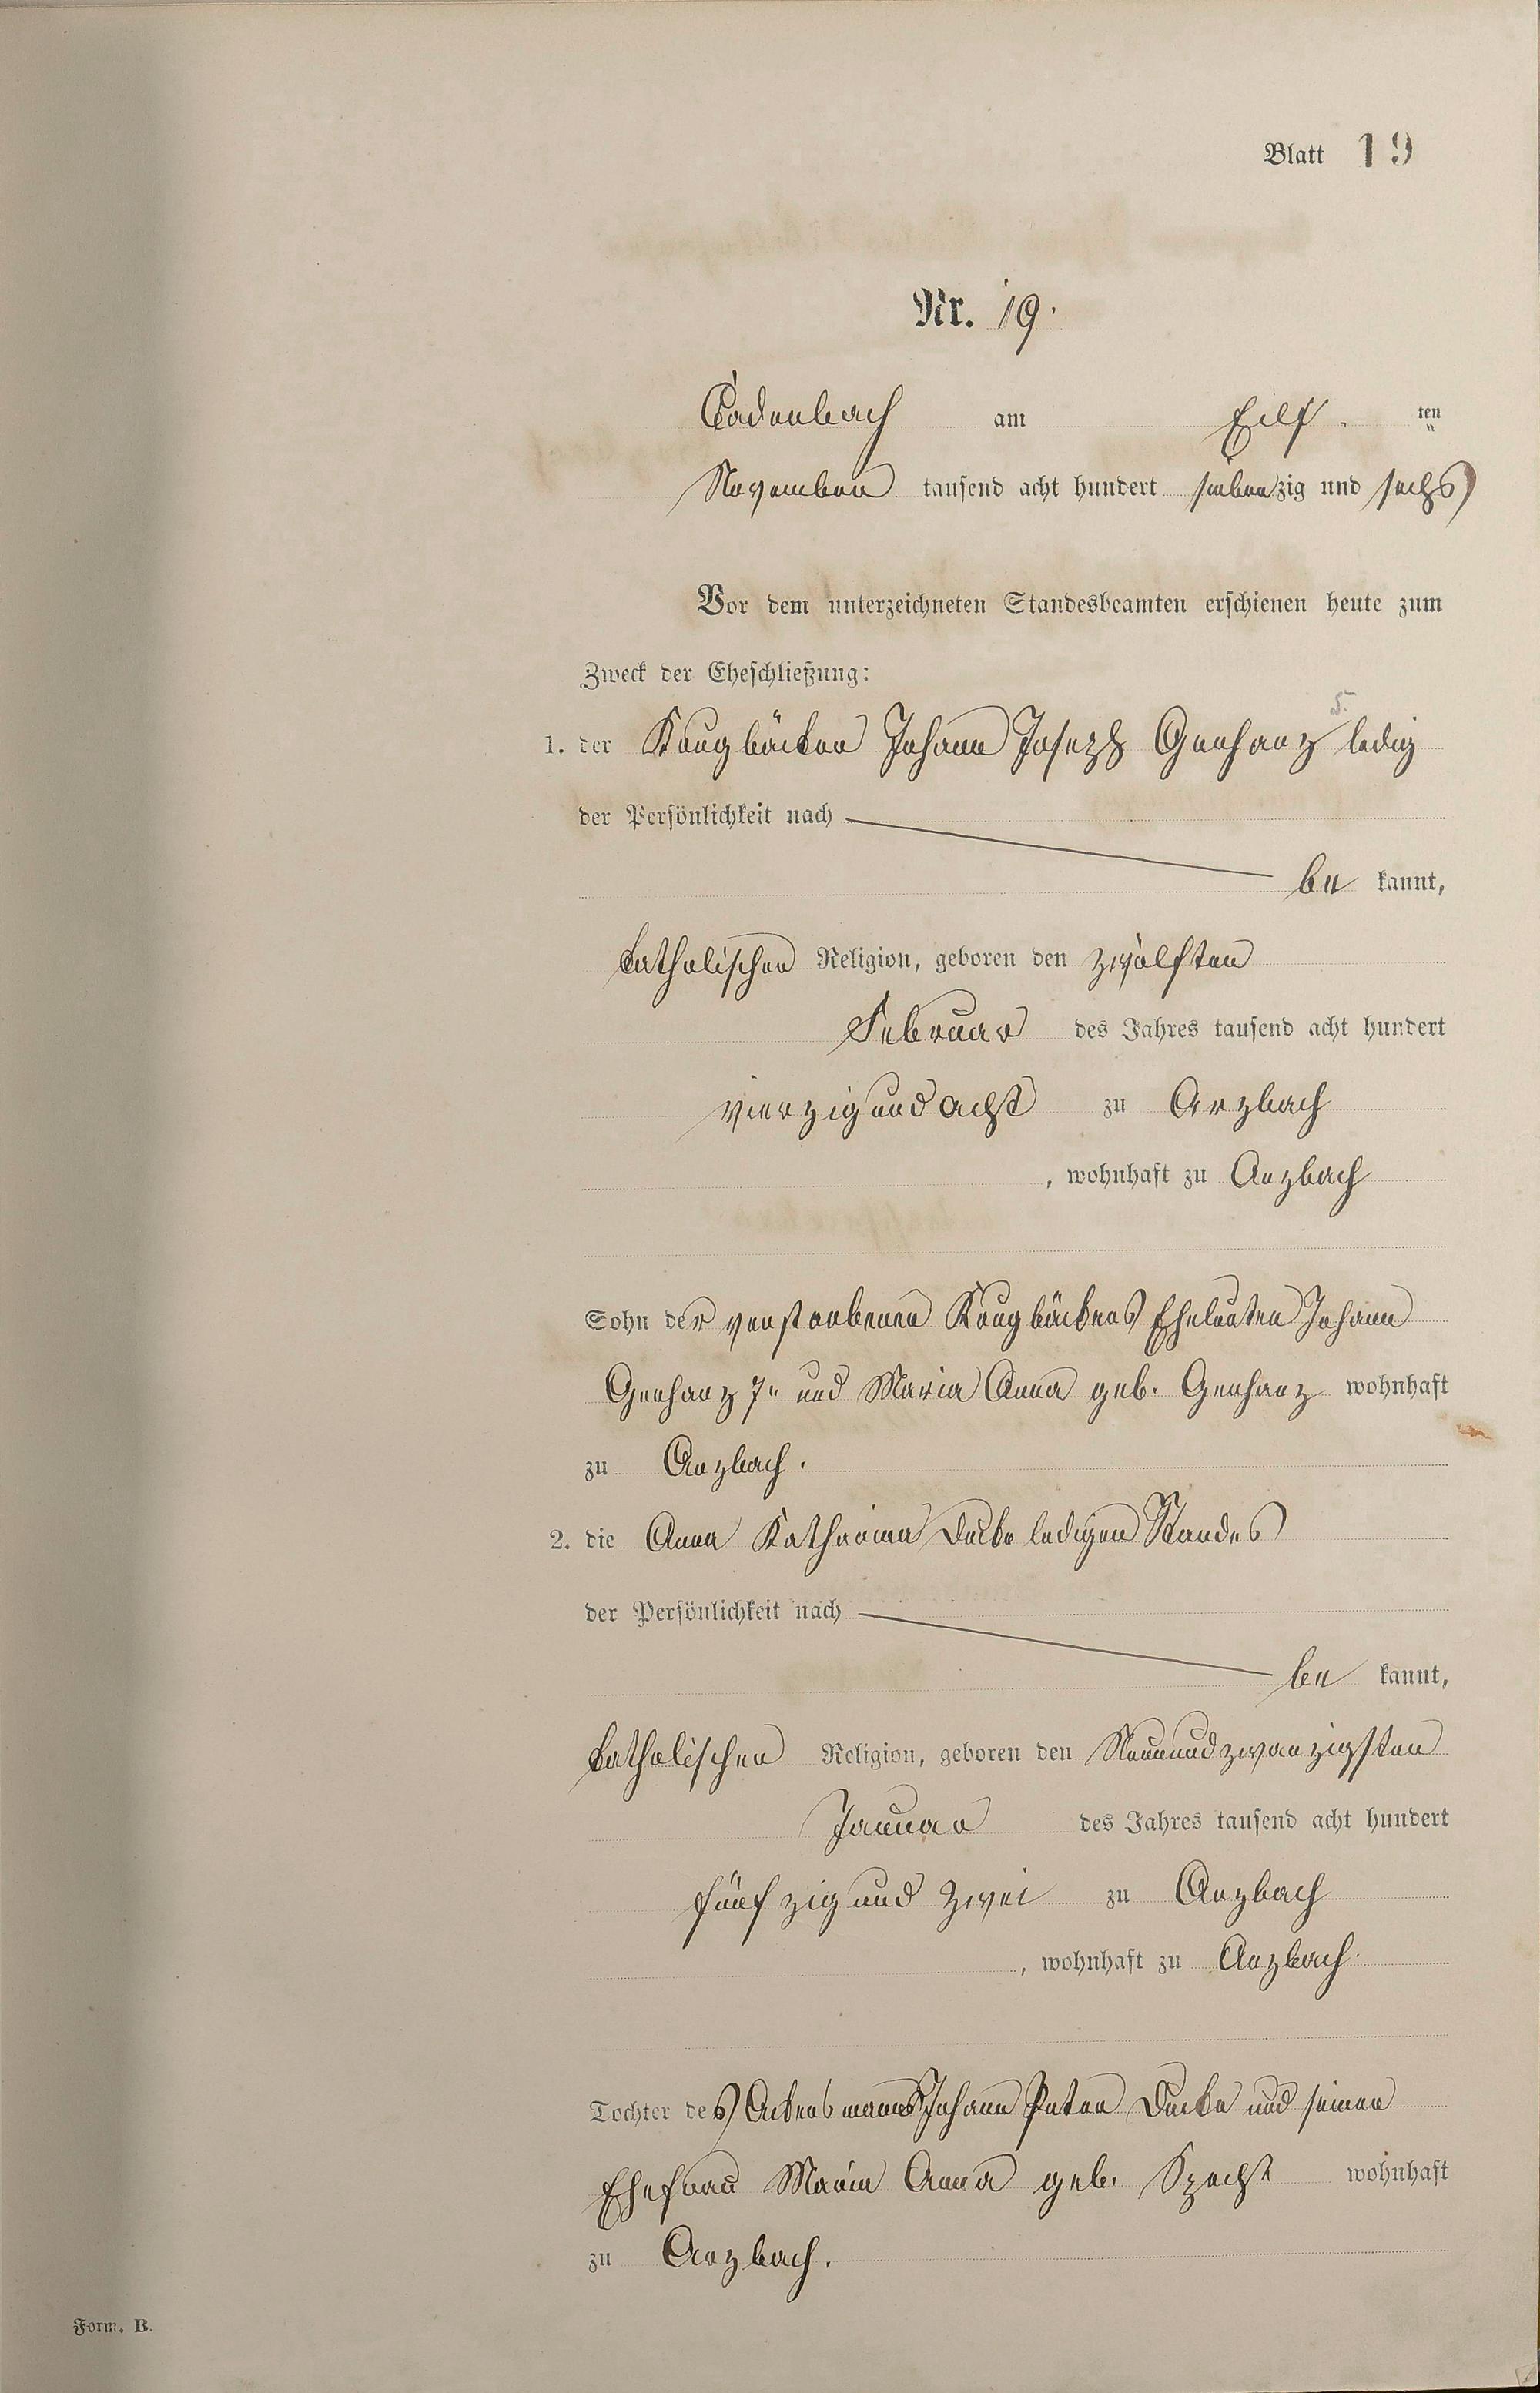 Blatt 19
Nr. 19.
Cadenbach am Eilf ten
November tausend acht hundert siebenzig und sechs
Vor dem unterzeichneten Standesbeamten erschienen heute zum
Zweck der Eheschließung:
1. der Krugbäcker Johann Joseph Gerharz 5. ledig
der Persönlichkeit nach
be kannt,
katholischer Religion, geboren den zwölften
Februar des Jahres tausend acht hundert
vierzig und acht zu Arzbach
, wohnhaft zu Arzbach
Sohn der verstorbenen Krugbäckers Eheleuten Johann
Gerharz 7r und Maria Anna geb. Gerharz wohnhaft
zu Arzbach.
2. die Anna Katharina Decker ledigen Standes
der Persönlichkeit nach
be kannt,
katholischer Religion, geboren den Neunundzwanzigsten
Januar des Jahres tausend acht hundert
fünfzig und zwei zu Arzbach
, wohnhaft zu Arzbach.
Tochter des Ackersmanns Johann Peter und seiner
Ehefrau Maria Anna geb. Specht wohnhaft
zu Arzbach.
Form. B.